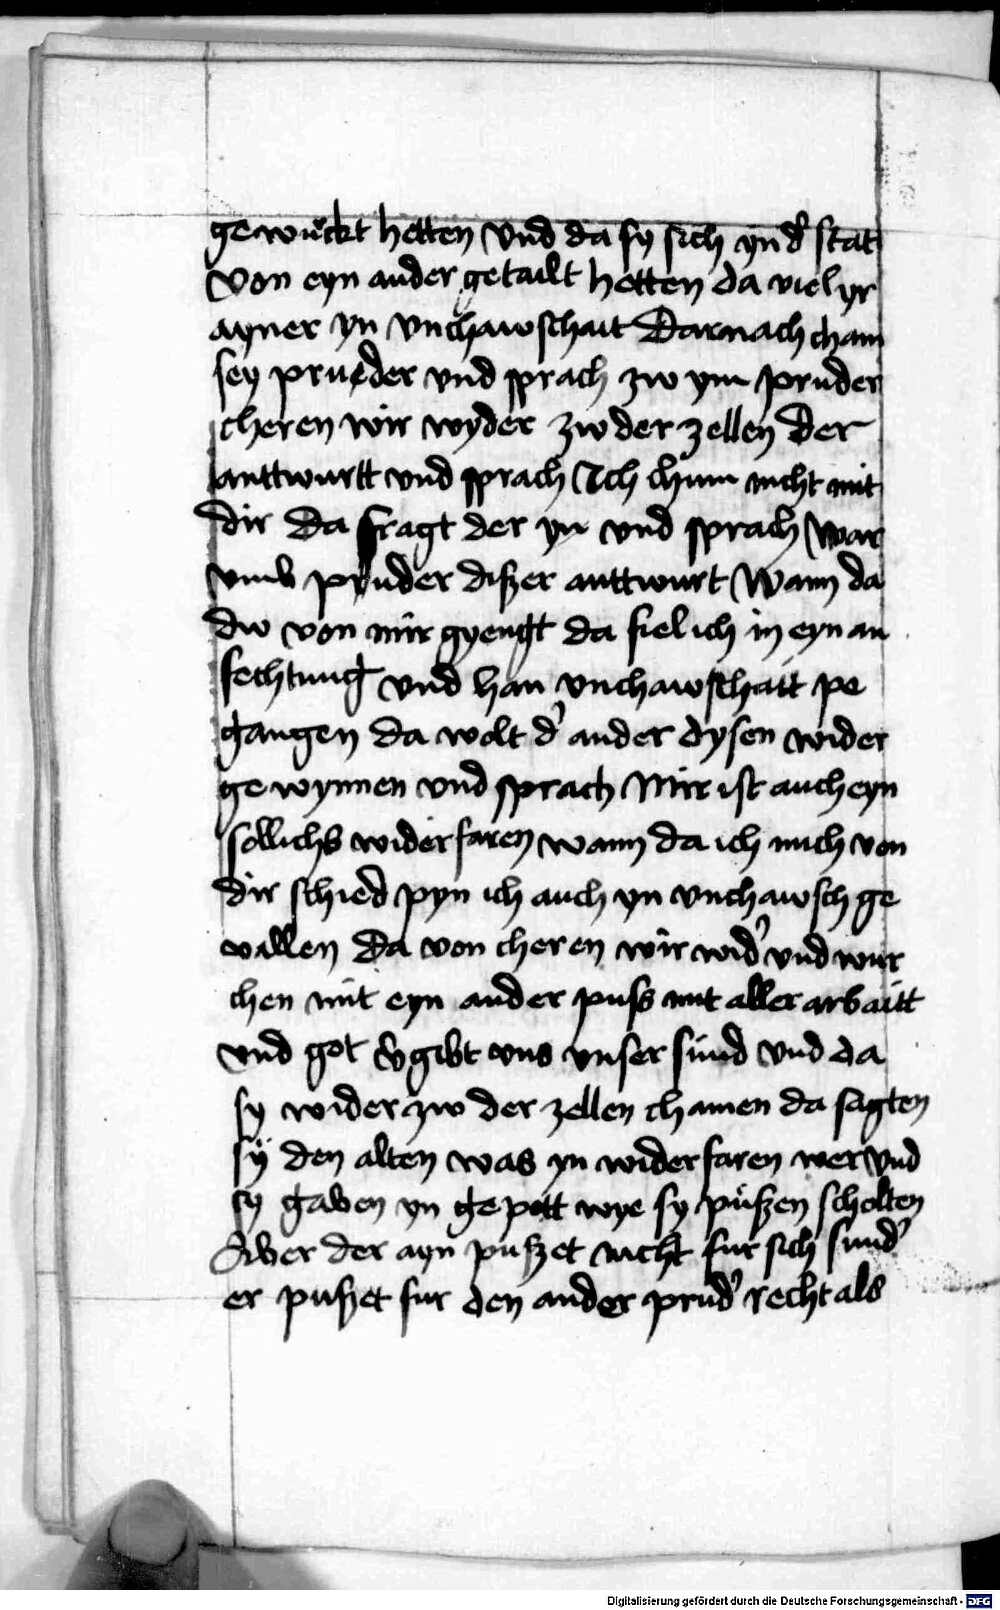 gewückt hetten Vnd da sy sich yn d' stat
Von eyn ander getailt hetten da viel yr
ayner yn vnchawschait Darnach cham
sey prueder vnd sprach zw ym pruder
cheren wir wyder zw der zellen Der
anttwurtt vnd sprach Ich chum nicht mit
dir Da fragt der yn vnd sprach War
vmb pruder diszer anttwurt Wann da
dw von mir gyengt da fiel ich in eyn an
fechtung vnd han vnchawschait pe
gangen da wolt d' ander dysen wider
gewynnen vnd sprach Mir ist auch eyn
sollichs widerfaren wann da ich mich von
dir schied pyn ich auch yn vnchawsch ge
vallen Da von cheren wir wid' vnd wur
chen mit eyn ander puss mit aller arbaitt
vnd got v'gibt vns vnser sünd Vnd da
sy wider zw der zellen chamen da sagten
sÿ den alten was yn widerfaren wer Vnd
sy gaben yn gepott wye sy püszen scholten
Aber der ayn puszet nicht fur sich sund'
er puszet fur den ander prud' recht als
Digitalisierung gefördert durch die Deutsche Forschungsgemeinschaft - DFG